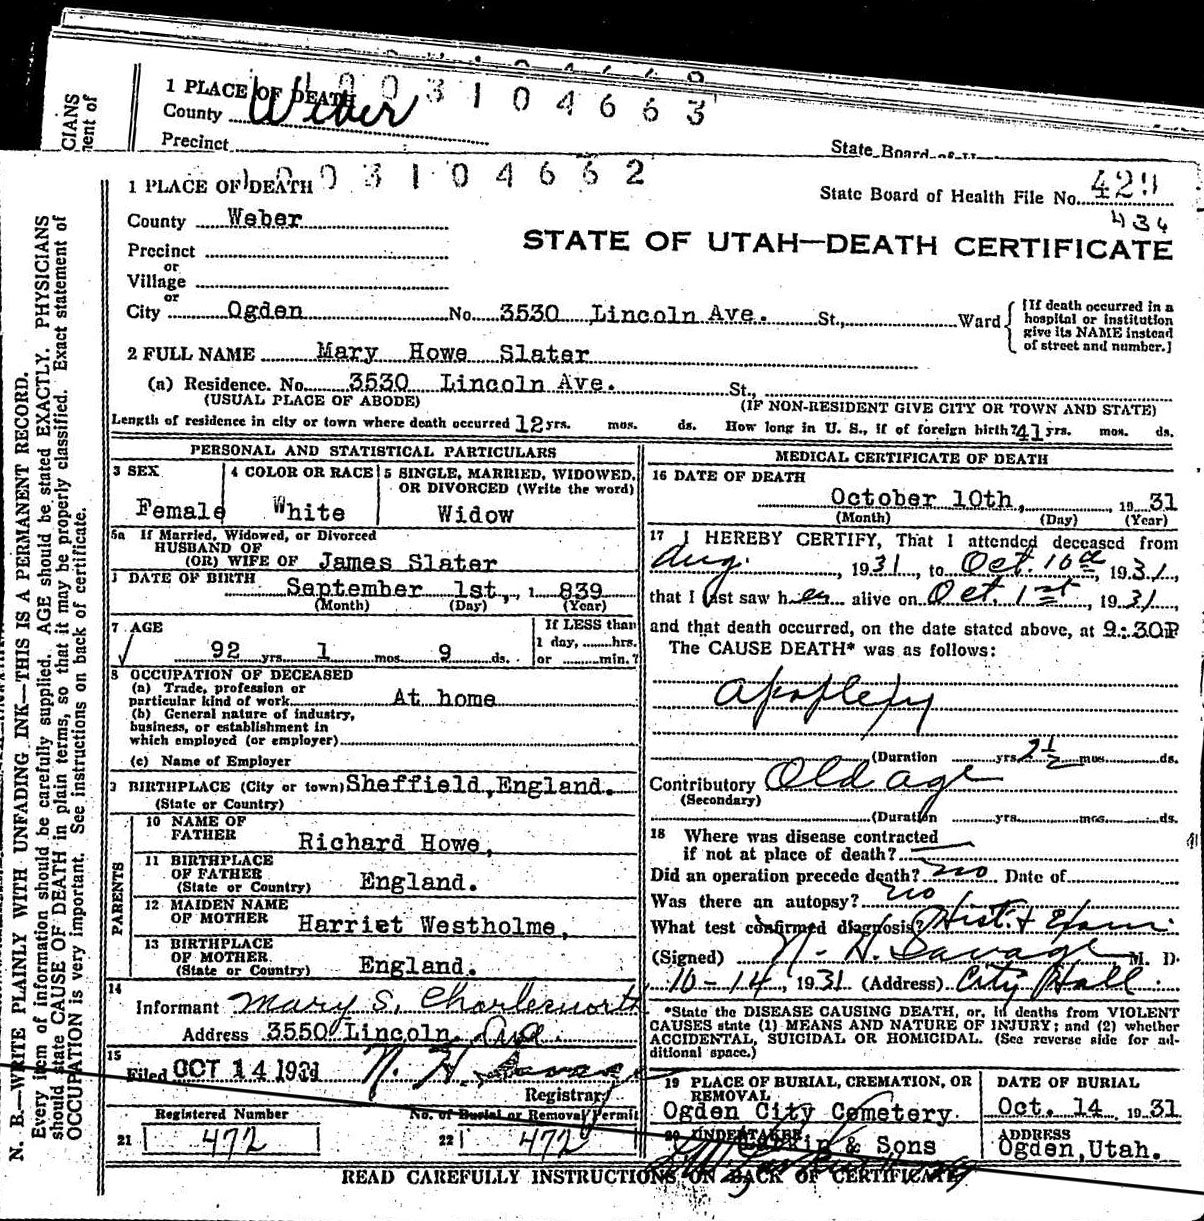 CIANS
ment of
1 PLACE OF DEATH
0 0 3 1 0 4 6 6 3
County Weber
Precinct
State Board of
1 PLACE OF DEATH
0 0 3 1 0 4 6 6 2
State Board of Health File No. 429
434
County Weber
STATE OF UTAH—DEATH CERTIFICATE
Precinct
or
Village
or
City Ogden No. 3530 Lincoln Ave. St., Ward
[If death occurred in a hospital or institution give its NAME instead of street and number.]
2 FULL NAME Mary Howe Slater
(a) Residence. No. 3530 Lincoln Ave. St.,
(USUAL PLACE OF ABODE) (IF NON-RESIDENT GIVE CITY OR TOWN AND STATE)
Length of residence in city or town where death occurred 12 yrs. mos. ds. How long in U. S., if of foreign birth? 41 yrs. mos. ds.
PERSONAL AND STATISTICAL PARTICULARS
3 SEX
Female
4 COLOR OR RACE
White
5 SINGLE, MARRIED, WIDOWED,
OR DIVORCED (Write the word)
Widow
5a If Married, Widowed, or Divorced
HUSBAND OF
(OR) WIFE OF James Slater
DATE OF BIRTH
September 1st, 1 839
(Month) (Day) (Year)
7 AGE
92 yrs. 1 mos. 9 ds.
If LESS than
1 day, hrs.
or min.?
8 OCCUPATION OF DECEASED
(a) Trade, profession or
particular kind of work At home
(b) General nature of industry,
business, or establishment in
which employed (or employer)
(c) Name of Employer
BIRTHPLACE (City or town) Sheffield, England.
(State or Country)
PARENTS
10 NAME OF
FATHER Richard Howe,
11 BIRTHPLACE
OF FATHER
(State or Country) England.
12 MAIDEN NAME
OF MOTHER Harriet Westholme,
13 BIRTHPLACE
OF MOTHER
(State or Country) England.
14
Informant Mary S. Charlesworth
Address 3550 Lincoln Ave
15
Filed OCT 14 1931 N. H. Savage
Registrar
Registered Number
21 472
No. of Burial or Removal Permit
22 472
MEDICAL CERTIFICATE OF DEATH
16 DATE OF DEATH
October 10th, 19 31
(Month) (Day) (Year)
17 I HEREBY CERTIFY, That I attended deceased from
Aug. , 1931, to Oct. 10th, 1931,
that I last saw her alive on Oct 1st, 1931,
and that death occurred, on the date stated above, at 9:30P
The CAUSE DEATH* was as follows:
Apoplexy
(Duration yrs. 2½ mos. ds.
Contributory Old age
(Secondary)
(Duration yrs. mos. ds.
18 Where was disease contracted
if not at place of death?
Did an operation precede death? no Date of
Was there an autopsy? no
What test confirmed diagnosis? Hist. & Exam
(Signed) N. H. Savage M. D.
10-14, 1931 (Address) City Hall
*State the DISEASE CAUSING DEATH, or, in deaths from VIOLENT
CAUSES state (1) MEANS AND NATURE OF INJURY; and (2) whether
ACCIDENTAL, SUICIDAL OR HOMICIDAL. (See reverse side for ad-
ditional space.)
19 PLACE OF BURIAL, CREMATION, OR
REMOVAL
Ogden City Cemetery.
DATE OF BURIAL
Oct. 14 19 31
20 UNDERTAKER
& Sons
ADDRESS
Ogden, Utah.
READ CAREFULLY INSTRUCTIONS ON BACK OF CERTIFICATE
N. B.—WRITE PLAINLY WITH UNFADING INK—THIS IS A PERMANENT RECORD.
Every item of information should be carefully supplied. AGE should be stated EXACTLY. PHYSICIANS
should state CAUSE OF DEATH in plain terms, so that it may be properly classified. Exact statement of
OCCUPATION is very important. See instructions on back of certificate.